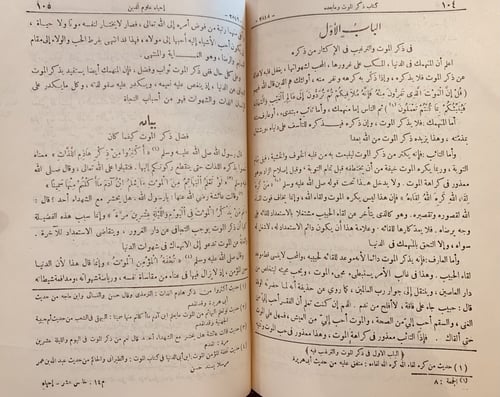 ١٠٤
كتاب ذكر الموت وما بعده
الباب الأول
في ذكر الموت والترغيب في الإكثار من ذكره
اعلم أن المنهمك في الدنيا، المكب على غرورها، المحب لشهواتها، يغفل قلبه لا محالة
عن ذكر الموت فلا يذكره. وإذا ذكر به كرهه ونفر منه. أولئك هم الذين قال الله فيهم
(قُلْ إِنَّ الْمَوْتَ الَّذِي تَفِرُّونَ مِنْهُ فَإِنَّهُ مُلَاقِيكُمْ ثُمَّ تُرَدُّونَ إِلَى عَالِمِ الْغَيْبِ وَالشَّهَادَةِ
فَيُنَبِّئُكُمْ بِمَا كُنْتُمْ تَعْمَلُونَ (١)) ثم الناس إما منهمك، وإما تائب مبتدئ، أو عارف منته
أما المنهمك: فلا يذكر الموت، وإن ذكره فيذكره للتأسف على دنياه، ويشتغل
بمذمته، وهذا يزيده ذكر الموت من الله بعدا
وأما التائب: فإنه يكثر من ذكر الموت لينبعث به من قلبه الخوف والخشية، فيفي بتمام
التوبة، وربما يكره الموت خيفة من أن يختطفه قبل تمام التوبة، وقبل إصلاح الزاد. وهو
معذور في كراهة الموت. ولا يدخل هذا تحت قوله صلى الله عليه وسلم (١)
الله كره الله لقاءه» فإن هذا ليس يكره الموت ولقاء الله، وإنما يخاف فوت لقاء
الله لقصوره وتقصيره. وهو كالذي يتأخر عن لقاء الحبيب مشتغلا بالاستعداد للقائه على
وجه يرضاه. فلا يعد كارها للقائه. وعلامة هذا أن يكون دائم الاستعداد له، لا شغل له
سواه، وإلا التحق بالمنهمك في الدنيا
وأما العارف: فإنه يذكر الموت دائما لأنه موعد للقائه لحبيبه، والمحب لا ينسى قط موعد
لقاء الحبيب. وهذا في غالب الأمر يستبطئ مجيء الموت، ويحب مجيئه ليتخلص من
دار العاصين، وينتقل إلى جوار رب العالمين. كما روي عن حذيفة أنه لما حضرته الوفاة
قال: حبيب جاء على فاقة، لا أفلح من ندم. اللهم إن كنت تعلم أن الفقر أحب إلي من
الغنى، والسقم أحب إلي من الصحة، والموت أحب إلي من العيش، فسهل علي الموت
حتى ألقاك. فإذا التائب معذور في كراهة الموت، وهذا معذور في حب الموت
(الباب الأول في ذكر الموت والترغيب فيه)
(١) حديث من كره لقاء الله كره الله لقاءه: متفق عليه من حديث أبي هريرة
(١) الجمعة: ٨
إحياء علوم الدين
١٠٥
منهما رتبة من فوض أمره إلى الله تعالى، فصار لا يختار لنفسه موتا ولا حياة،
يكون أحب الأشياء إليه أحبها إلى مولاه. فهذا قد انتهى بفرط الحب والولاء إلى مقام
والرضا، وهو الغاية والمنتهى.
وعلى كل حال ففي ذكر الموت ثواب وفضل. فإن المنهمك أيضا يستفيد بذكر الموت
عن الدنيا، إذ ينغص عليه نعيمه، ويكدر عليه صفو لذته، وكل ما يكدر على
الإنسان اللذات والشهوات فهو من أسباب النجاة
بيان
فضل ذكر الموت كيفما كان
قال رسول الله صلى الله عليه وسلم (١) «أَكْثِرُوا مِنْ ذِكْرِ هَاذِمِ اللَّذَّاتِ» معناه
بذكره اللذات حتى ينقطع ركونكم إليها، فتقبلوا على الله تعالى. وقال صلى الله
وسلم (٢) «لَوْ تَعْلَمُ الْبَهَائِمُ مِنَ الْمَوْتِ مَا يَعْلَمُ ابْنُ آدَمَ مَا أَكَلْتُمْ مِنْهَا سَمِينًا»
(٣) وقالت عائشة رضي الله عنها: يا رسول الله، هل يحشر مع الشهداء أحد؟ قال:
الْمَوْتَ فِي الْيَوْمِ وَاللَّيْلَةِ عِشْرِينَ مَرَّةً» وإنما سبب هذه الفضيلة
أن ذكر الموت يوجب التجافي عن دار الغرور، ويتقاضى الاستعداد للآخرة.
عن الموت تدعو إلى الانهماك في شهوات الدنيا
صلى الله عليه وسلم (٤) «تُحْفَةُ الْمُؤْمِنِ الْمَوْتُ» وإنما قال هذا لأن الدنيا
سجن المؤمن، إذ لا يزال فيها في عناء من مقاساة نفسه، ورياضة شهواته، ومدافعة شيطانه
(١) حديث أكثروا من ذكر هاذم اللذات: الترمذي وقال حسن والنسائي وابن ماجه من حديث
أبي هريرة
(٣) حديث قالت عائشة هل يحشر مع الشهداء أحد قال نعم من ذكر الموت في اليوم والليلة عشرين
(٤) حديث تحفة المؤمن الموت: ابن أبي الدنيا في كتاب الموت والطبراني والحاكم من حديث عبد الله بن عمر
مرسلا بسند حسن
م ١٤: خامس عشر - إحياء